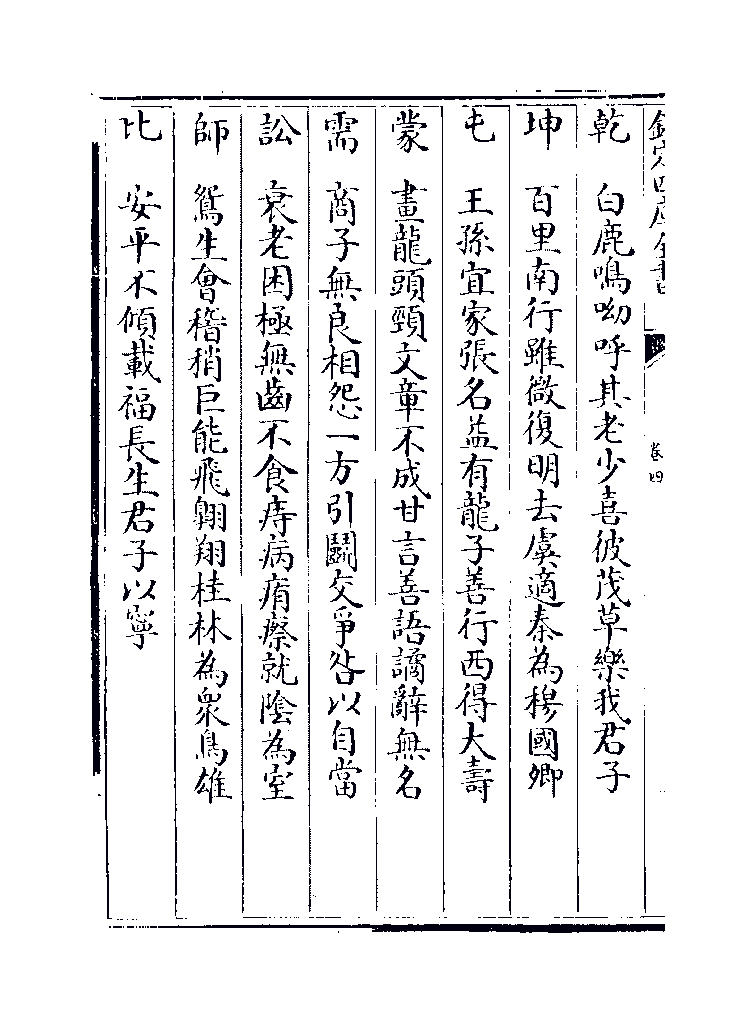 欽定四庫全書
卷四
乾 白鹿鳴呦呼其老少喜彼茂草樂我君子
坤 百里南行雖微復明去虞適秦為穆國卿
屯 王孫宜家張名益有龍子善行西得大壽
蒙 畫龍頭頸文章不成甘言善語譎辭無名
需 商子無良相怨一方引鬭交爭咎以自當
訟 衰老困極無齒不食痔病痏瘵就陰為室
師 鴛生會稽稍巨能飛翺翔桂林為衆鳥雄
比 安平不傾載福長生君子以寧